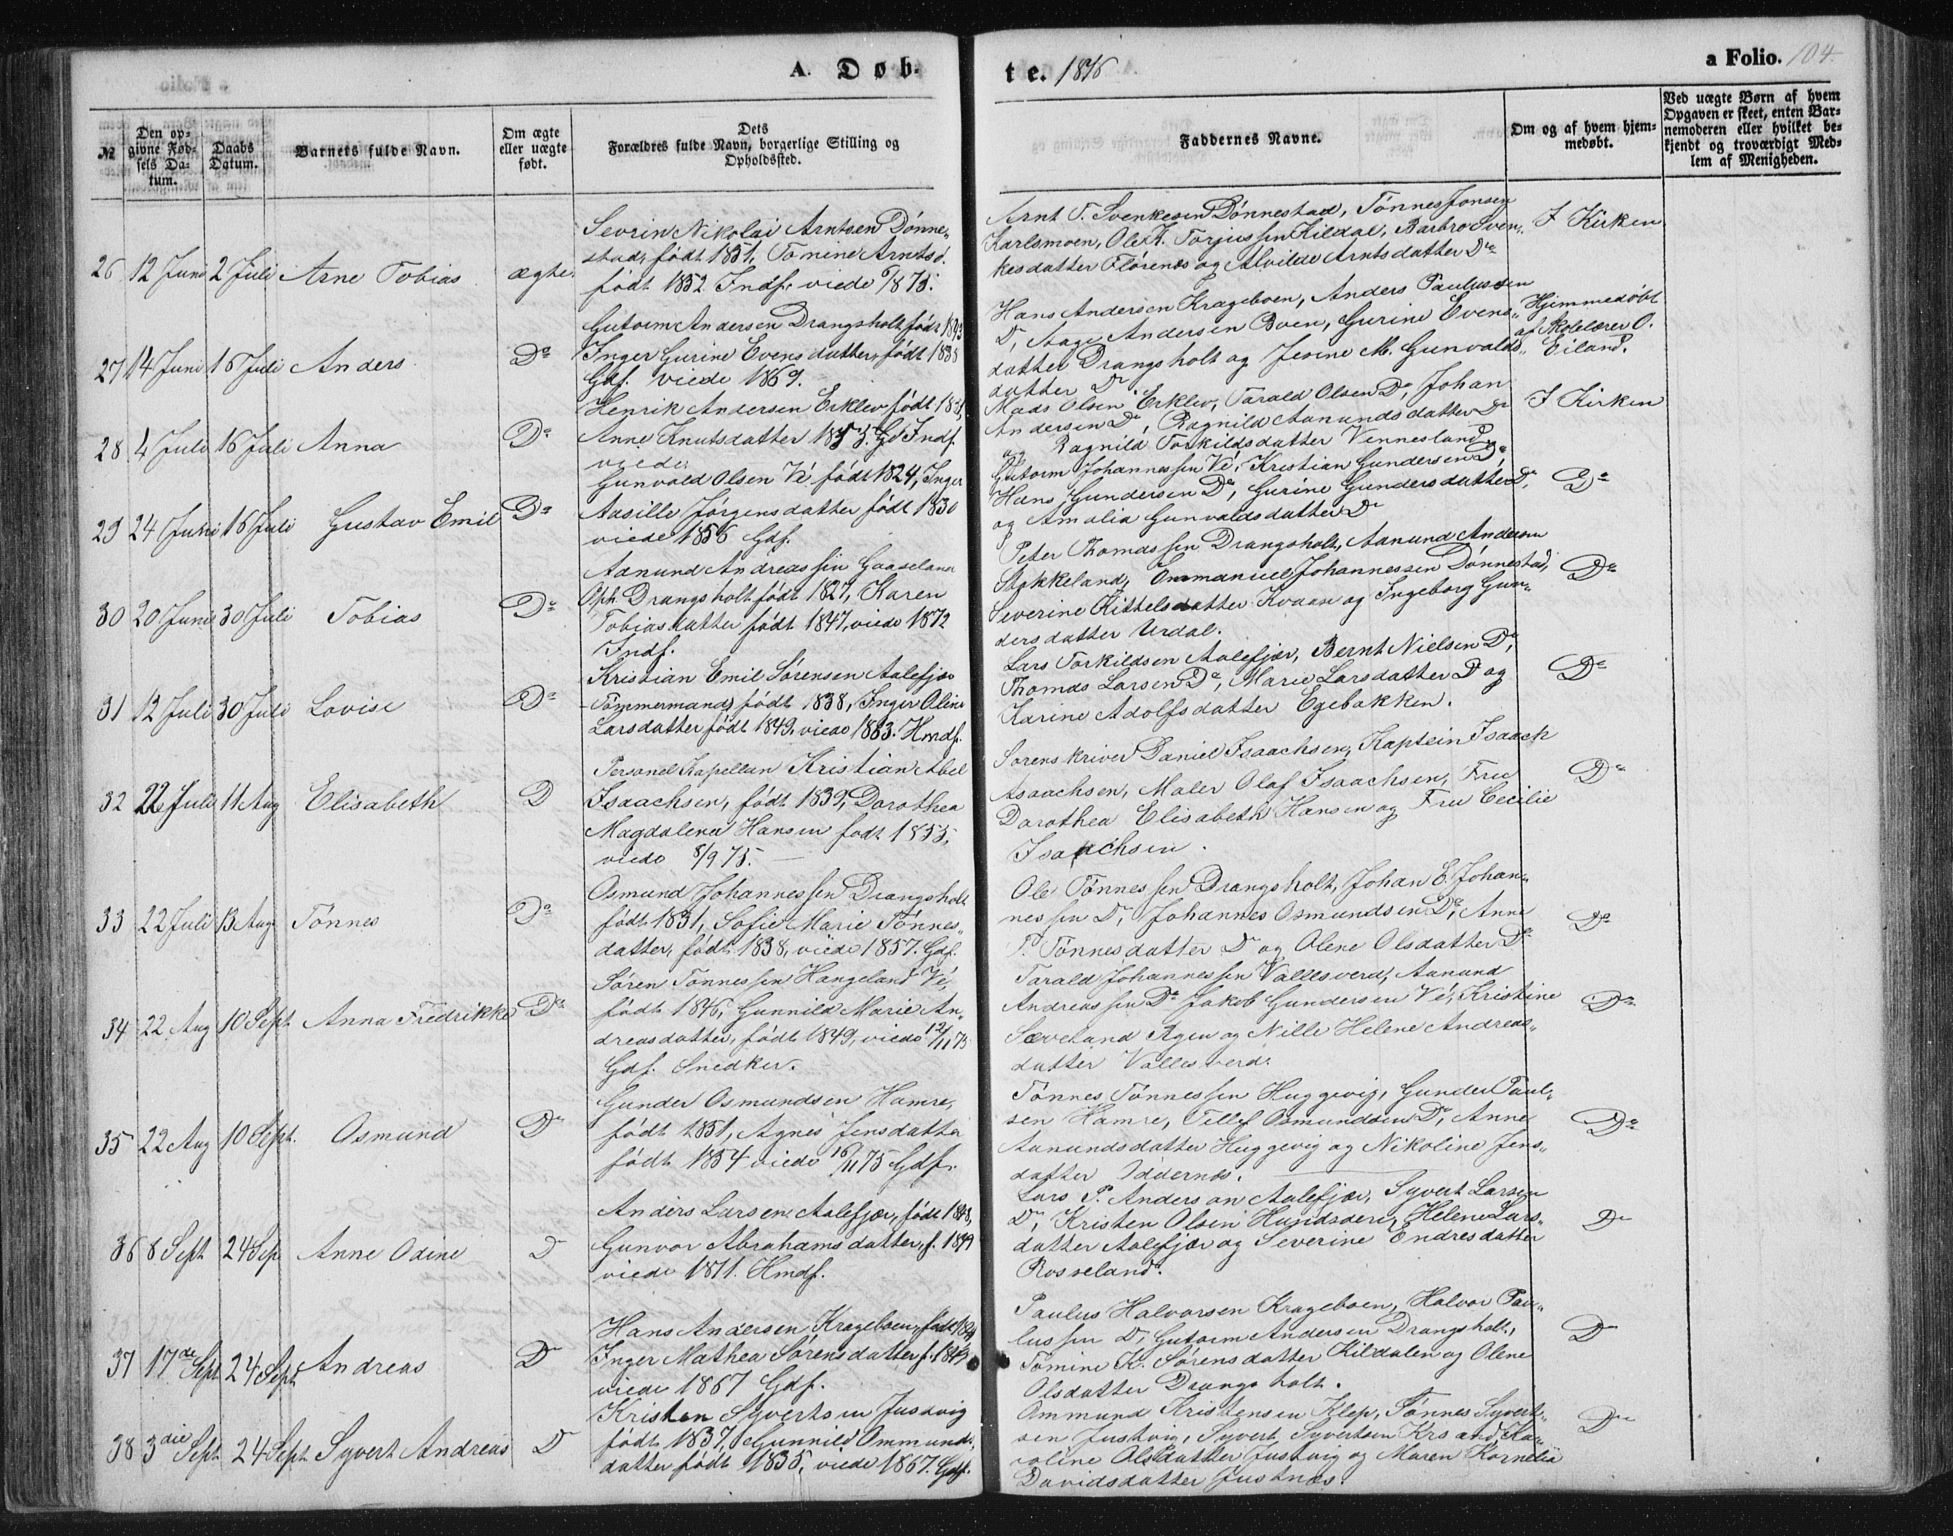 A. Døb-
te. 1876
a Folio. 104.
№
Den op-
givne Fød-
sels Da-
tum.
Daabs
Datum.
Barnets fulde Navn.
Om ægte
eller uægte
født.
Dets
Forældres fulde Navn, borgerlige Stilling og
Opholdssted.
Faddernes Navne.
Om og af hvem hjem-
medøbt.
Ved uægte Børn af hvem
Opgaven er skeet, enten Bar-
nemoderen eller hvilket be-
kjendt og troværdigt Med-
lem af Menigheden.
26 12 Juni 2 Juli Arne Tobias ægte
Sevrin Nikolai Arntsen Dønne-
stad, født 1851, Tomine Arntsd.
født 1852 Indf. viede 1875.
Arnt T. Svenkesen Dønnestad, Tønnes Jonsen
Karlsmoen, Ole K. Torjussen Kildal, Barbro Sven-
kesdatter Flørenes og Alvilde Arntsdatter Do
I Kirken
27 14 Juni 16 Juli Anders Do
Gutorm Andersen Drangsholt født
Inger Gurine Evensdatter, født 1838
Gdf. viede 1869.
Hans Andersen Krageboen, Anders Paulussen
D, Aage Andersen Boen, Gurine Evens-
datter Drangsholt og Jesine M. Gunvalds-
datter Do
Hjemmedøbt
af Skolelærer O.
Eiland.
28 4 Juli 16 Juli Anna Do
Henrik Andersen Erklev født 1831,
Anne Knutsdatter 1833. Gd Indf.
viede
Mads Olsen Erklev, Tarald Olsen Do, Johan
Andersen Do, Ragnild Aanundsdatter Do
og Ragnild Torkildsdatter Vennesland
I Kirken
29 24 Juni 16 Juli Gustav Emil Do
Gunvald Olsen Vé født 1824, Inger
Aasille Jørgensdatter født 1830
viede 1856 Gdf.
Gutorm Johannessen Vé, Kristian Gundersen Do,
Hans Gundersen Do, Gurine Gundersdatter Do
og Amalia Gunvaldsdatter Do
Do
30 20 Juni 30 Juli Tobias Do
Aanund Andreassen Gaaseland
Oph. Drangsholt født 1827, Karen
Tobiasdatter født 1847, viede 1872
Indf.
Peter Thomassen Drangsholt, Aanund Andersen
Stokkeland, Emmanuel Johannessen Dønnestad,
Severine Kittelsdatter Kvaase og Ingeborg Gun-
dersdatter Urdal.
Do
31 12 Juli 30 Juli Lovise Do
Kristian Emil Sørensen Aalefjær
Tømmermand, født 1838, Inger Oline
Larsdatter født 1849, viede 1863. Hmdf.
Lars Torkildsen Aalefjær, Bernt Nielsen Do,
Thomas Larsen Do, Marie Larsdatter Do og
Karine Adolfsdatter Egebakken.
Do
32 22 Juli 11 Aug Elisabeth D
Personel Kapellan Kristian Abel
Isaachsen, født 1839, Dorothea
Magdalena Hansen født 1855,
viede 8/9 75.
Sorenskriver Daniel Isaachsen, Kaptein Isaach
Isaachsen, Maler Olaf Isaachsen, Fru
Dorothea Elisabeth Hansen og Fru Cecilie
Isaachsen.
Do
33 22 Juli 13 Aug Tønnes Do
Osmund Johannessen Drangsholt
født 1831, Sofie Marie Tønnes-
datter, født 1838, viede 1857. Gdf.
Ole Tønnessen Drangsholt, Johan E. Johan-
nessen Do, Johannes Osmundsen Do, Anne
T. Tønnesdatter Do og Olene Olsdatter Do
Do
34 22 Aug 10 Sept. Anna Fredrikke Do
Søren Tønnessen Hangeland Vé,
født 1846, Gunnild Marie An-
dreasdatter, født 1849, viede 12/11 75
Gdf. Snedker.
Tarald Johannessen Vallesverd, Aanund
Andreassen Do Jakob Gundersen Vé, Kristine
Sæveland Agen og Nille Helene Andreas-
datter Vallesverd.
Do
35 22 Aug 10 Sept. Osmund Do
Gunder Osmundsen Hamre,
født 1851, Agnes Jensdatter
født 1854 viede 16/11 75 Gdf.
Tønnes Tønnessen Huggevig, Gunder Paul-
sen Hamre, Tellef Osmundsen Do, Anne
Aanundsdatter Huggevig og Nikoline Jens-
datter Oddernes.
Do
36 8 Sept 24 Sep Anne Odine D
Anders Larsen Aalefjær, født 1848,
Gunvor Abrahamsdatter, f. 1849
viede 1871. Hmdf.
Lars P. Andersen Aalefjær, Syvert Larsen
Do, Kristen Olsen Hundsøen, Helene Lars-
datter Aalefjær og Severine Endresdatter
Rosseland.
Do
37 17de Sept 24 Sept Andreas D
Hans Andersen Krageboen, født
Inger Mathea Sørensdatter f. 1849
viede 1867 Gdf.
Paulus Halvorsen Krageboen, Halvor Pau-
lussen D, Gutorm Andersen Drangsholt,
Tomine K. Sørensdatter Kildalen og Olene
Olsdatter Drangsholt.
Do
38 3die Sept 24 Sept Syvert Andreas D
Kristen Syvertsen Justvig
født 1837, Gunnild Ommunds-
datter født 1835, viede 1867. Gdf.
Ommund Kristensen Klep, Tønnes Syvert-
sen Justvig, Syvert Syvertsen Krsand, Ka-
roline Olsdatter Justvig og Maren Kornelia
Davidsdatter Justnæs.
Do